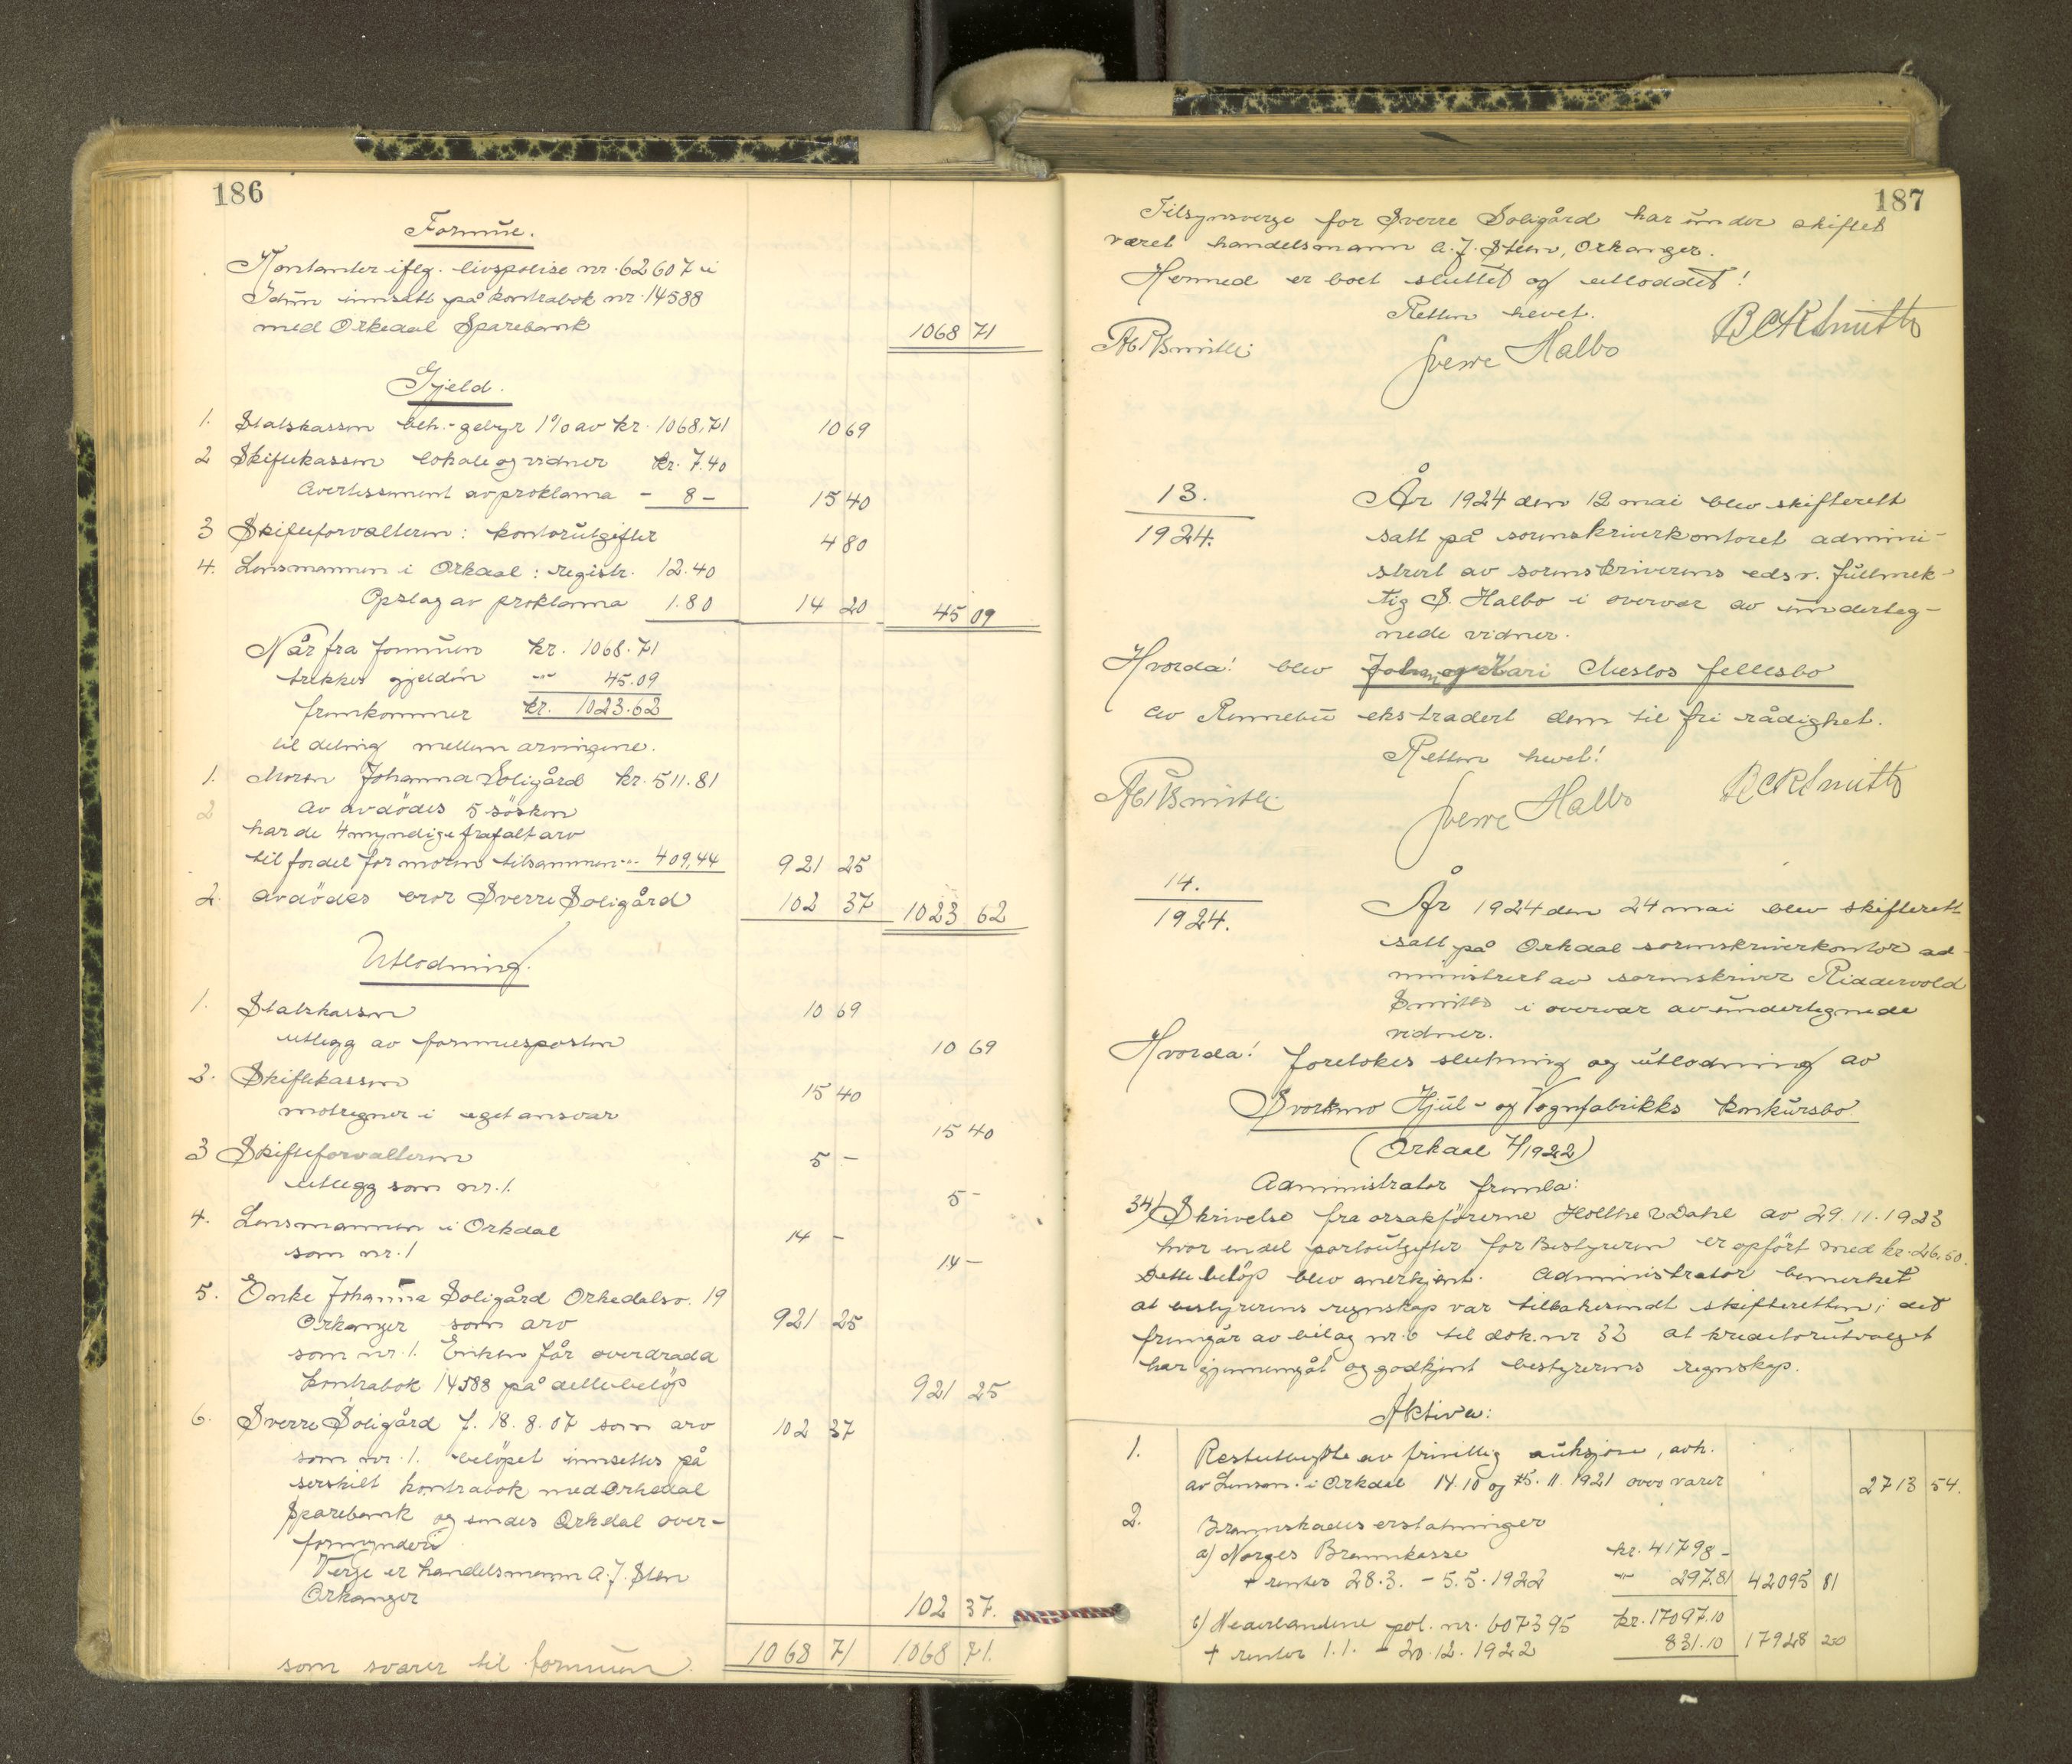 186
Formue.
Kontanter iflg. livspolise nr. 62607 i
Idun innsatt på kontrabok nr. 14588
med Orkedal Sparebank 1068 71
Gjeld.
1. Statskassen beh.-gebyr 1% av kr. 1068,71 10 69
2 Skiftekassen lokale og vidner kr. 7.40
Avertissement av proklama - 8 - 15 40
3 Skifteforvalteren: kontorutgifter 4 80
4. Lensmannen i Orkdal: registr. 12.40
Opslag av proklama 1.80 14 20 45 09
Når fra formuen kr. 1068.71
trekkes gjelden -"- 45.09
fremkommer kr. 1023.62
til deling mellem arvingene.
1. Moren Johanna Soligård kr. 511.81
2 Av avdödes 5 sösken
har de 4 myndige frafalt arv
til fordel for moren tilsammen -"- 409,44 921 25
2. Avdödes bror Sverre Soligård 102 37 1023 62
Utlodning.
1. Statskassen 10 69
utlegg av formuesposten 10 69
2. Skiftekassen 15 40
motregner i eget ansvar 15 40
3 Skifteforvalteren 5 -
utlegg som nr. 1. 5 -
4. Lensmannen i Orkdal 14 -
som nr. 1 14 -
5. Enke Johanna Soligård Orkedalsv. 19
Orkanger som arv 921 25
som nr. 1. Enken får overdradd
kontrabok 14588 på dette belöp 921 25
6. Sverre Soligård f. 18.8.07 som arv 102 37
som nr. 1. belöpet innsettes på
serskilt kontrabok med Orkedal
Sparebank og sendes Orkdal over-
formynderi
Verge er handelsmann A. J. Sten
Orkanger 102 37.
1068 71 1068 71.
som svarer til formuen.
187
Tilsynsverge for Sverre Soligård har under skiftet
været handelsmann A. J. Sten, Orkanger.
Hermed er boet sluttet og utloddet!
Retten hevet.
Sverre Halbo BCRSmith
13.
1924.
År 1924 den 12 mai blev skifterett
satt på sorenskriverkontoret admini-
strert av sorenskriverens edsv. fullmek-
tig S. Halbo i overvær av underteg-
nede vidner.
Hvorda! blev John og Kari Meslos fellesbo
av Rennebu ekstradert dem til fri rådighet.
Retten hevet!
Sverre Halbo BCRSmith
14.
1924.
År 1924 den 24 mai blev skifterett
satt på Orkdal sorenskriverkontor ad-
ministrert av sorenskriver Riddervold
Smith i overvær av undertegnede
vidner.
Hvorda! foretokes slutning og utlodning av
Svorkmo Hjul- og Vognfabrikks konkursbo.
(Orkdal 7/1922)
Administrator fremla:
34) Skrivelse fra orsakförerne Holthe & Dahl av 29.11.1923
hvor en del portoutgifter for Bestyreren er opfört med kr. 26.50.
Dette belöp blev anerkjent. Administrator bemerket
at bestyrerens regnskap var tilbakesendt skifteretten; det
fremgår av bilag nr. 6 til dok. nr 32 at kreditorutvalget
har gjennemgåt og godkjent bestyrerens regnskap.
Aktiva:
1. Restutbytte av frivillig auksjon, avh.
av Lensm. i Orkdal 14.10 og 15.11.1921 over varer 2713 54.
2. Brannskades erstatninger
a) Norges Brannkasse kr. 41798 -
+ renter 28.3. - 5.5. 1922 -"- 297.81 42095 81
b) Nederlandene pol. nr. 607395 kr. 17097.10
+ renter 1.1. - 20.12. 1922 831.10 17928 20